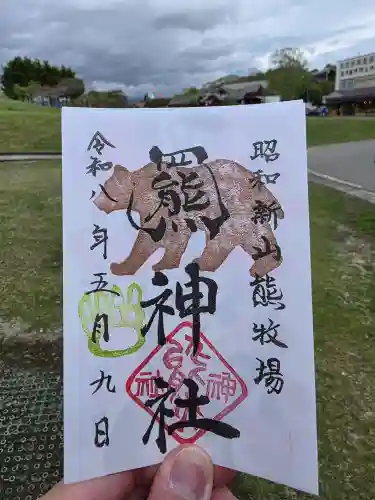 昭和新山熊牧場
熊神社
令和八年五月九日